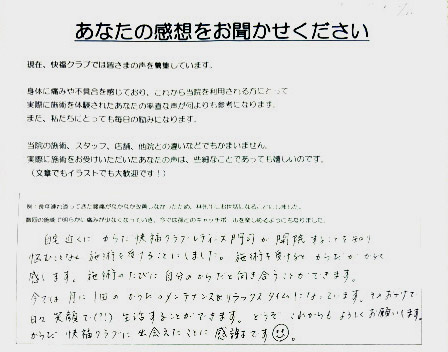 あなたの感想をお聞かせください
現在、快福クラブでは皆さまの声を募集しています。
身体に痛みや不具合を感じており、これから当院を利用される方にとって
実際に施術を体験されたあなたの率直な声が何よりも参考になります。
また、私たちにとっても毎日の励みになります。
当院の施術、スタッフ、店舗、他院との違いなどでもかまいません。
実際に施術をお受けいただいたあなたの声は、些細なことであっても嬉しいのです。
(文章でもイラストでも大歓迎です!)
例:長年連れ添ってきた腰痛がなかなか改善しなかったため、
数回の施術で明らかに痛みが少なくなっていき、今では孫とのキャッチボールを楽しめるようになりました。
自宅近くに からだ快福クラブ レディース門司が 開院することを知り
悩むことなく 施術を受けることにしました。施術を受けると からだが かるく
感じます。施術のたびに 自分のからだと向き合うことができます。
今では 月に1回の からだのメンテナンス&リラックスタイムになっています。そのおかげで
日々 笑顔で(!?) 生活することができます。どうぞ これからも よろしくお願いします。
からだ 快福クラブに 出会えたことに 感謝です